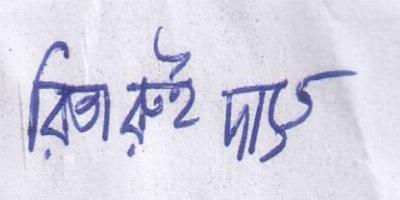 রিতা রুইদাস